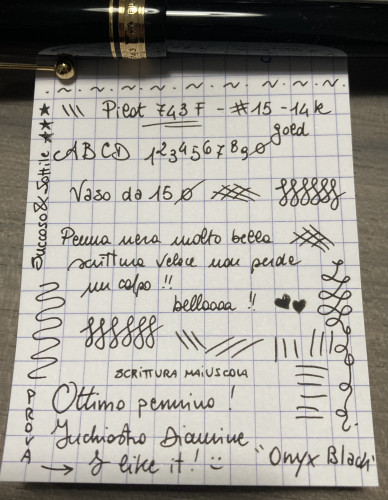 Pilot 743 F - #15 - 14k
gold
ABCD 1234567890
Vaso da 150
Penna nera molto bella
scrittura veloce non perde
un colpo !!
belloooa !!
SCRITTURA MAIUSCOLA
Ottimo pennino !
Inchiostro Diamine
"Onyx Black"
→ I like it! :)
Succoso & Sottile ★★★
PROVA